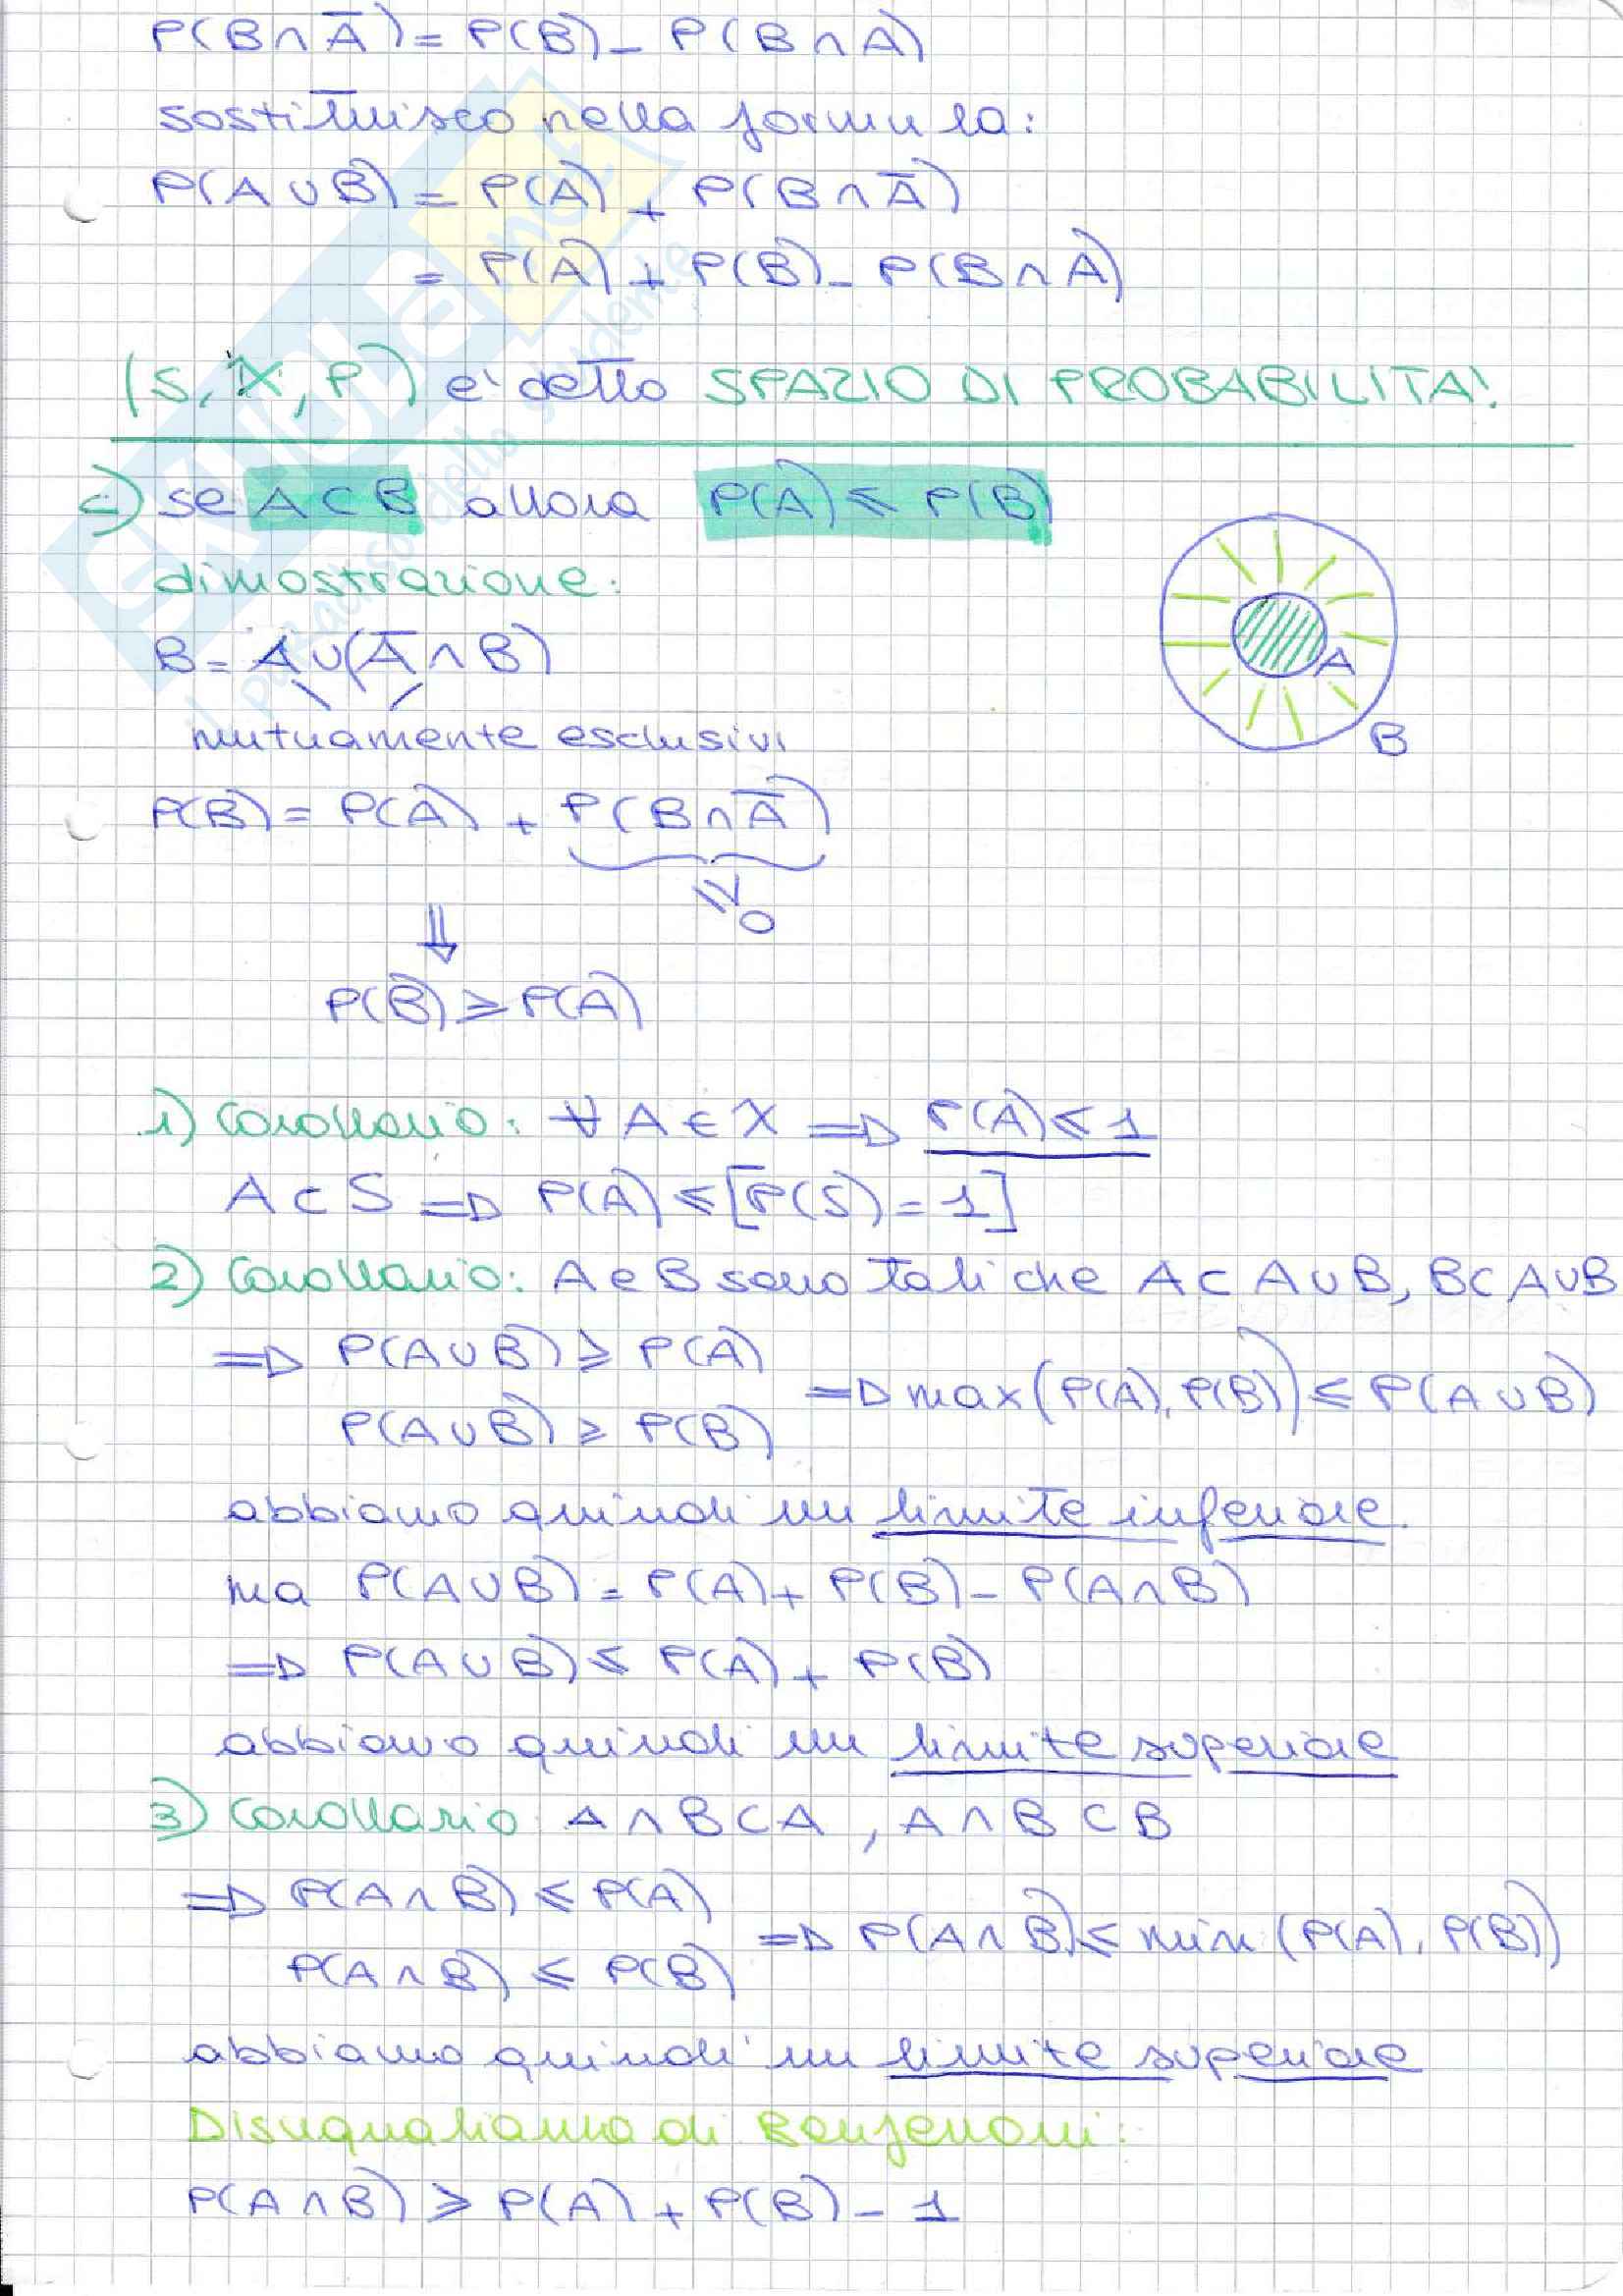 P(B∩A̅) = P(B) - P(B∩A)
sostituisco nella formula:
P(A∪B) = P(A) + P(B∩A̅)
= P(A) + P(B) - P(B∩A)
(S, X, P) e' detto SPAZIO DI PROBABILITA'
c) se A⊂B allora P(A) ≤ P(B)
dimostrazione:
B = A∪(A̅∩B)
A
mutuamente esclusivi
B
P(B) = P(A) + P(B∩A̅)
≥ 0
⇓
P(B) ≥ P(A)
1) Corollario: ∀ A ∈ X ⇒ P(A) ≤ 1
A⊂S ⇒ P(A) ≤ [P(S) = 1]
2) Corollario: A e B sono tali che A⊂A∪B, B⊂A∪B
⇒ P(A∪B) ≥ P(A)
P(A∪B) ≥ P(B) ⇒ max(P(A), P(B)) ≤ P(A∪B)
abbiamo quindi un limite inferiore
ma P(A∪B) = P(A) + P(B) - P(A∩B)
⇒ P(A∪B) ≤ P(A) + P(B)
abbiamo quindi un limite superiore
3) Corollario: A∩B⊂A, A∩B⊂B
⇒ P(A∩B) ≤ P(A)
P(A∩B) ≤ P(B) ⇒ P(A∩B) ≤ min(P(A), P(B))
abbiamo quindi un limite superiore
Disuguaglianza di Bonferroni:
P(A∩B) ≥ P(A) + P(B) - 1